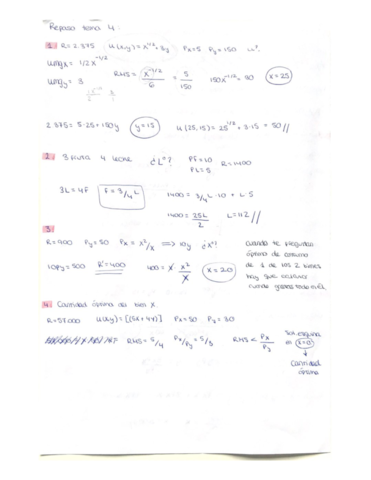 Repaso tema 4
1. R = 2.375 U(x,y) = x^1/2 + 3y Px = 5 Py = 150 U*
UMgx = 1/2 x^-1/2
UMgy = 3
RMS = x^-1/2 / 6 = 5/150 150x^-1/2 = 30 x = 25
2.375 = 5·25 + 150y y = 15 U(25,15) = 25^1/2 + 3·15 = 50 //
2. 3 fruta 4 leche ¿L*? PF = 10 R = 1400
PL = 5
3L = 4F F = 3/4 L 1400 = 3/4 L · 10 + L · 5
1400 = 25L/2 L = 112 //
3.
R = 900 Py = 50 Px = x²/x => 10y ¿x*?
10Py = 500 R' = 400 400 = x · x²/x x = 20
cuando te preguntan
óptimo de consumo
de 1 de los 2 bienes
hay que
4. Cantidad óptima del bien X
R = 57.000 U(x,y) = [(5x + 4y)] Px = 50 Py = 30
RMS = 5/4 Px/Py = 5/3 RMS < Px/Py
Sol. esquina
en x = 0
↓
cantidad
óptima